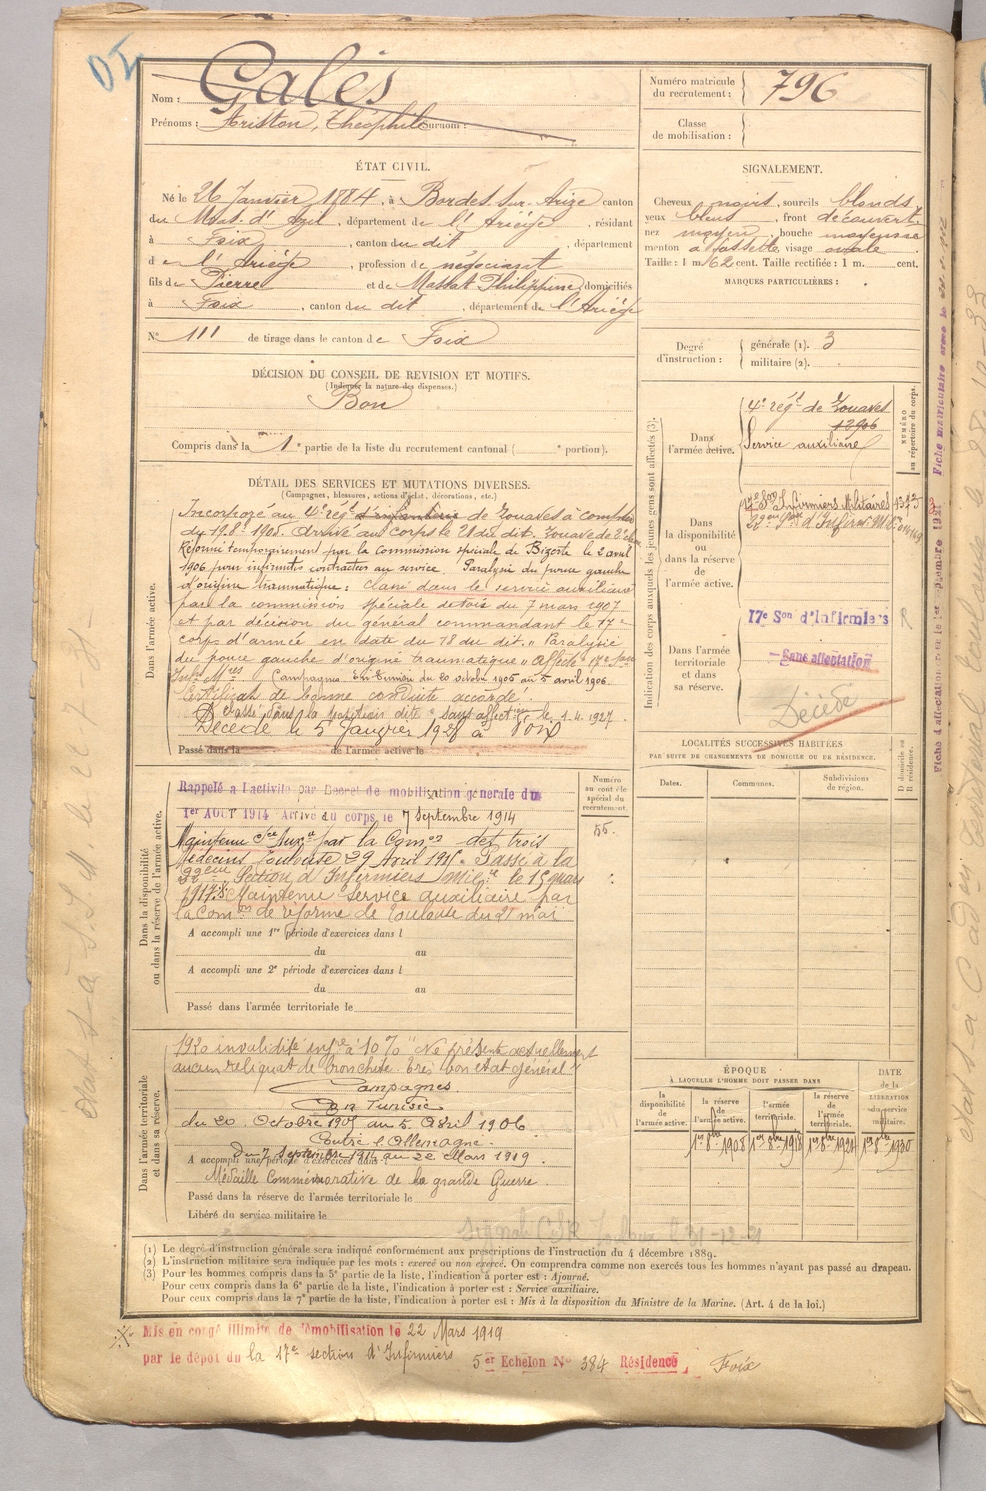 Nom : Galès
Prénoms : Ariston, Théophile Surnom :
Numéro matricule du recrutement : 796
Classe de mobilisation :
ÉTAT CIVIL.
Né le 26 Janvier 1884, à Bordes sur Arize canton
du Mas d'Azil, département de l'Ariège, résidant
à Foix, canton du dit, département
de l'Ariège, profession de négociant
fils de Pierre et de Massat Philippine, domiciliés
à Foix, canton du dit, département de l'Ariège
N° 111 de tirage dans le canton de Foix
SIGNALEMENT.
Cheveux noirs, sourcils blonds
yeux bleus, front découvert
nez moyen, bouche moyenne
menton à fossette, visage ovale
Taille : 1 m. 62 cent. Taille rectifiée : 1 m. cent.
MARQUES PARTICULIÈRES :
Degré d'instruction : générale (1). 3
militaire (2).
DÉCISION DU CONSEIL DE REVISION ET MOTIFS.
(Indiquer la nature des dispenses.)
Bon
Compris dans la 1e partie de la liste du recrutement cantonal ( e portion).
DÉTAIL DES SERVICES ET MUTATIONS DIVERSES.
(Campagnes, blessures, actions d'éclat, décorations, etc.)
Dans l'armée active.
Incorporé au 4e régt d'infanterie de Zouaves à compter
du 19 8bre 1905. Arrivé au corps le 21 du dit. Zouave de 2e
Réformé temporairement par la commission spéciale de Bizerte le 2 avril
1906 pour infirmités contractées au service. Paralysie du pouce gauche
d'origine traumatique : Classé dans le service auxiliaire
par la commission spéciale de Foix du 7 mars 1907
et par décision du général commandant le 17e
corps d'armée en date du 18 du dit. "Paralysie
du pouce gauche d'origine traumatique" Affecté 17e Son
Infirs Mres Campagne : En Tunisie du 20 octobre 1905 au 5 avril 1906.
Certificat de bonne conduite accordé.
Classé dans la position dite "sans affectation" le 1-4-1927.
Décédé le 5 Janvier 1928 à Foix
Passé dans la de l'armée active le
Indication des corps auxquels les jeunes gens sont affectés (3).
NUMÉRO au répertoire du corps.
Dans l'armée active.
4e régt de Zouaves
12906
Service auxiliaire
Dans la disponibilité ou dans la réserve de l'armée active.
17e Son Infirmiers Militaires
Dans l'armée territoriale et dans sa réserve.
17e Son d'Infirmiers R
Sans affectation
Décédé
LOCALITÉS SUCCESSIVES HABITÉES
PAR SUITE DE CHANGEMENTS DE DOMICILE OU DE RÉSIDENCE.
Dates. Communes. Subdivisions de région. D domicile ou R résidence.
Dans la disponibilité ou dans la réserve de l'armée active.
Numéro au contrôle spécial du recrutement.
55.
Rappelé à l'activité par Décret de mobilisation générale du
1er AOUT 1914 Arrivé au corps le 7 Septembre 1914
Maintenu Sce Auxre par la Comon des trois
Médecins Toulouse 29 Avril 1915. Passé à la
22ème Section d'Infirmiers Milres le 15 mars
1917. Maintenu Service auxiliaire par
la Comon de réforme de Toulouse du 21 mai
A accompli une 1re période d'exercices dans l
du au
A accompli une 2e période d'exercices dans l
du au
Passé dans l'armée territoriale le
Dans l'armée territoriale et dans sa réserve.
1920 invalidité infre à 10% "Ne présente actuellement
aucun reliquat de bronchite. Très bon état général"
Campagnes
En Tunisie
du 20 Octobre 1905 au 5 Avril 1906
Contre l'Allemagne.
Du 7 Septembre 1914 au 22 Mars 1919.
A accompli une période d'exercices dans l
Médaille Commémorative de la grande Guerre.
Passé dans la réserve de l'armée territoriale le
Libéré du service militaire le
ÉPOQUE
À LAQUELLE L'HOMME DOIT PASSER DANS
la disponibilité de l'armée active.
la réserve de l'armée active. 1er 8bre 1908
l'armée territoriale. 1er 8bre 1918
la réserve de l'armée territoriale. 1er 8bre 1924
DATE de la LIBÉRATION du service militaire. 1er 8bre 1930
(1) Le degré d'instruction générale sera indiqué conformément aux prescriptions de l'instruction du 4 décembre 1889.
(2) L'instruction militaire sera indiquée par les mots : exercé ou non exercé. On comprendra comme non exercés tous les hommes n'ayant pas passé au drapeau.
(3) Pour les hommes compris dans la 5e partie de la liste, l'indication à porter est : Ajourné.
Pour ceux compris dans la 6e partie de la liste, l'indication à porter est : Service auxiliaire.
Pour ceux compris dans la 7e partie de la liste, l'indication à porter est : Mis à la disposition du Ministre de la Marine. (Art. 4 de la loi.)
Mis en congé illimité de démobilisation le 22 Mars 1919
par le dépôt du la 17e section d'Infirmiers 5er Echelon No 384 Résidence Foix